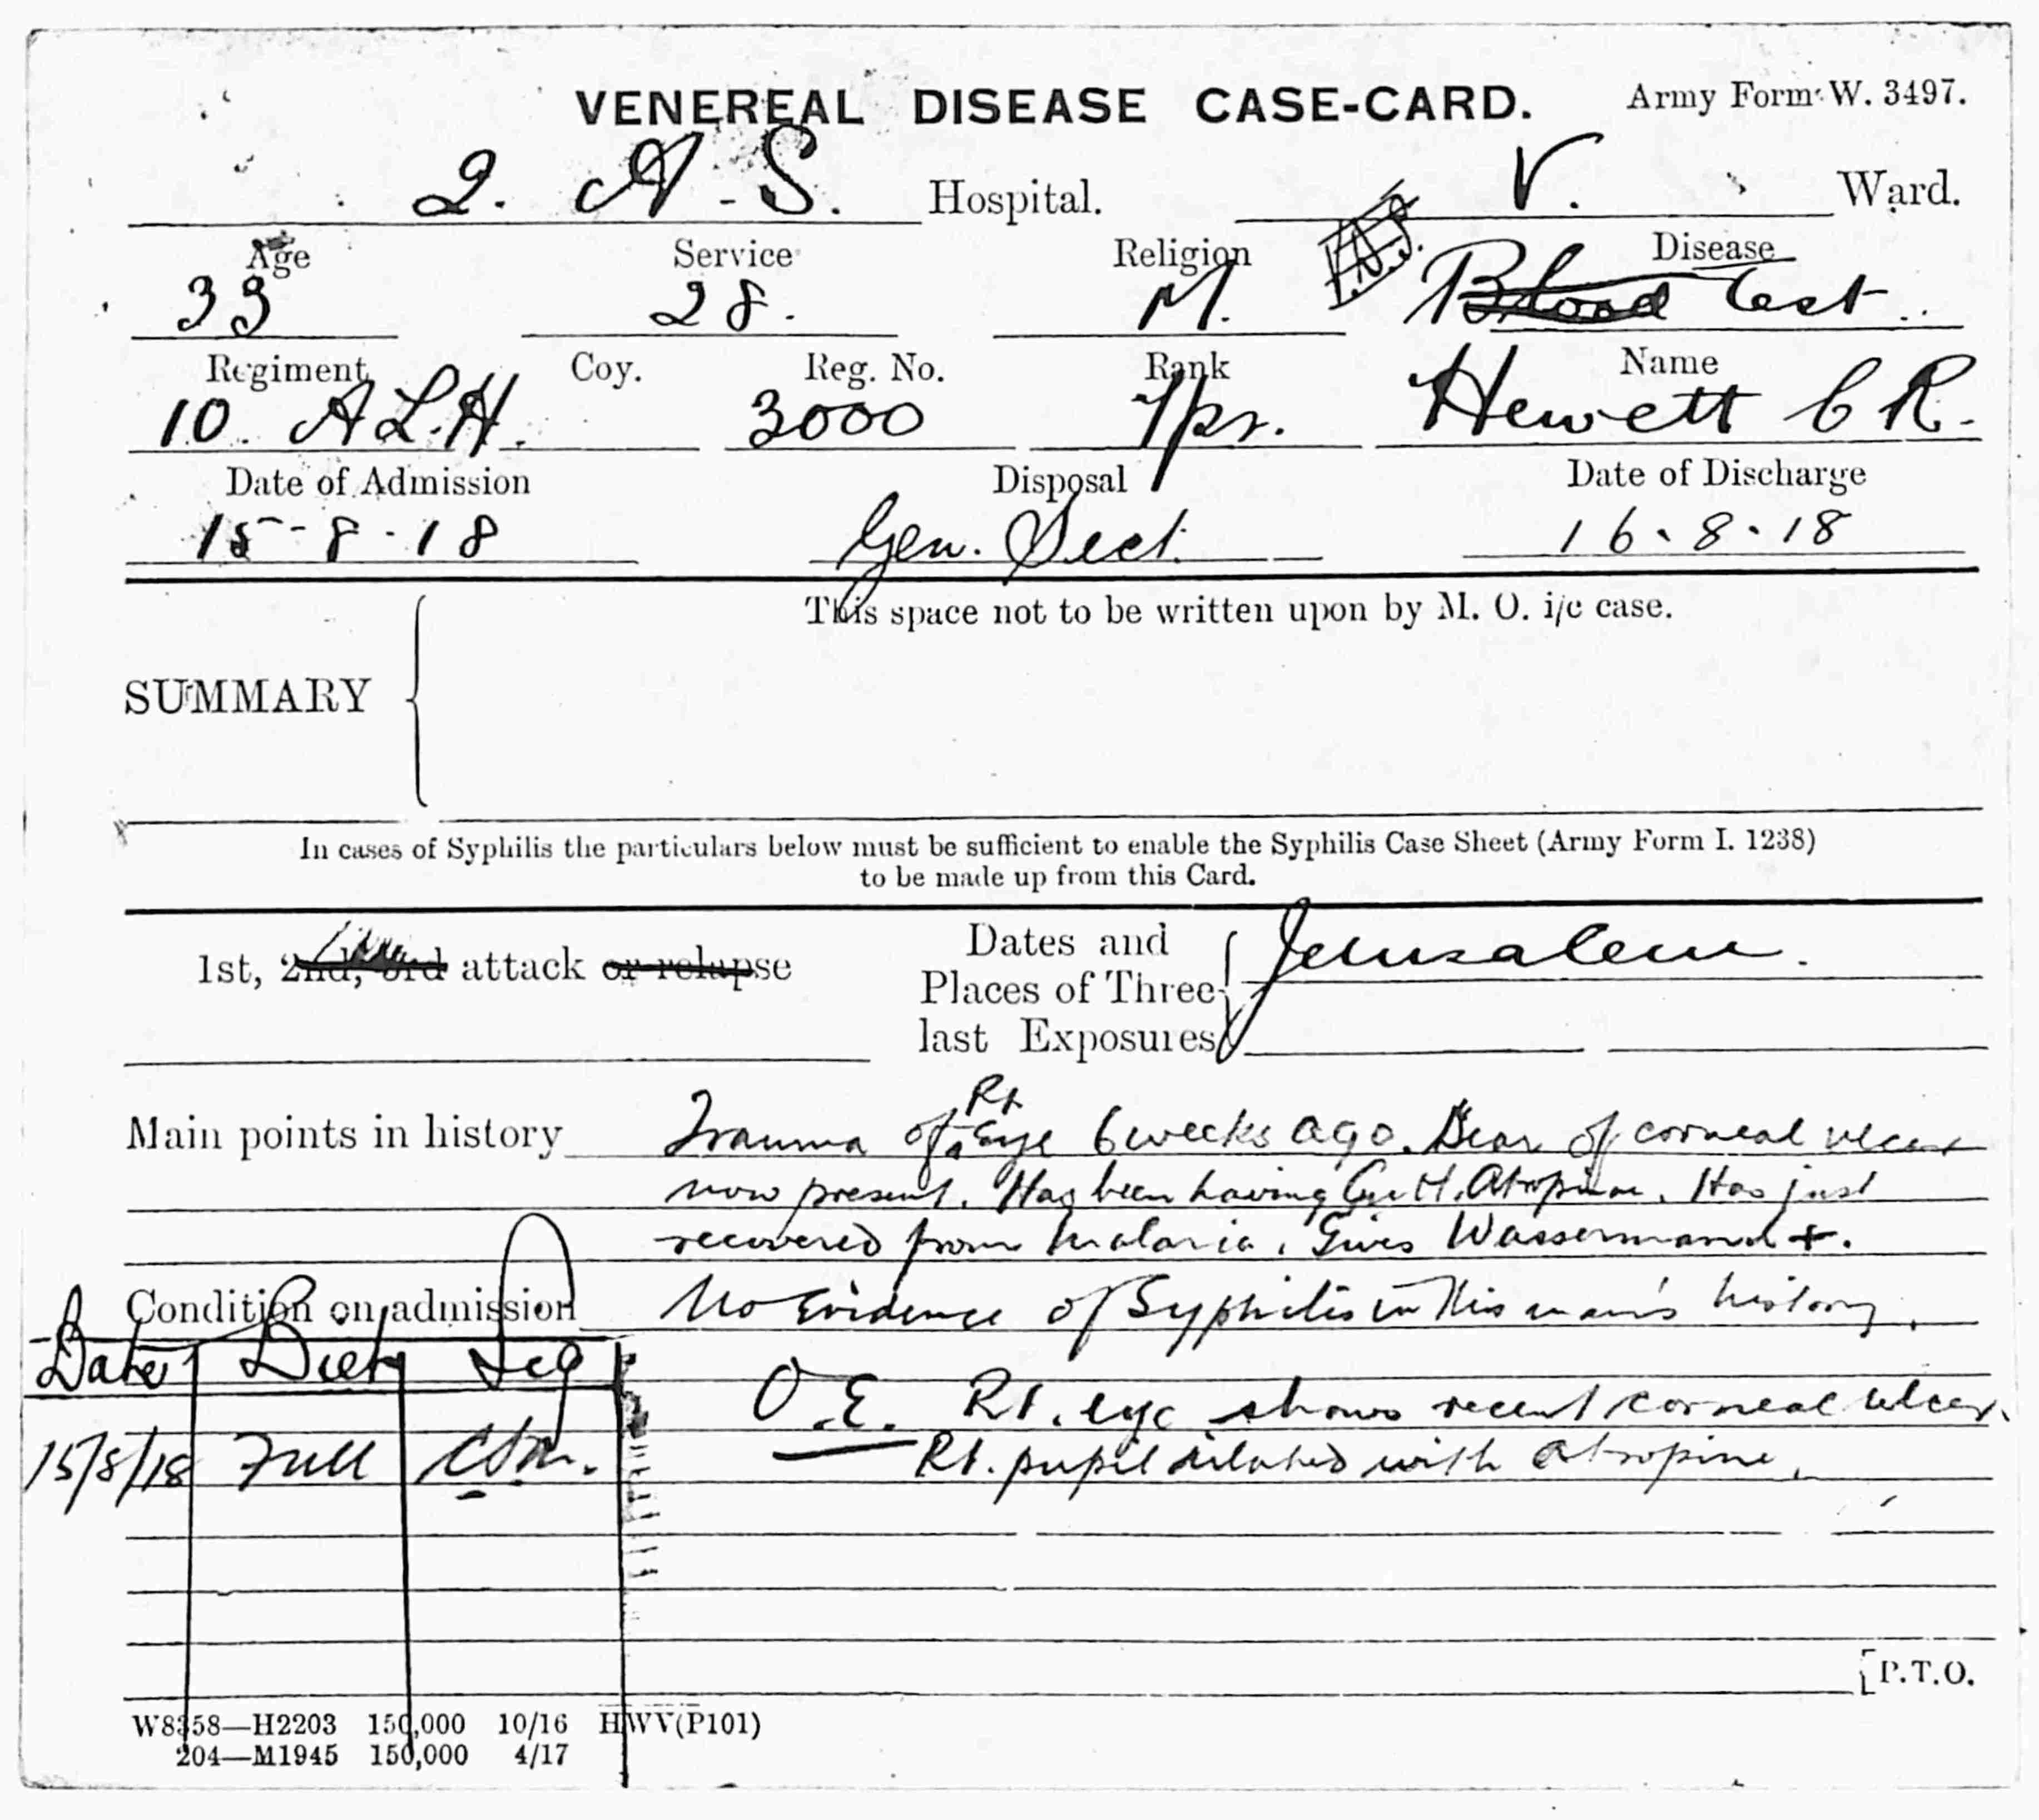 VENEREAL DISEASE CASE-CARD. Army Form W. 3497.
2. A.S. Hospital. V. Ward.
Age Service Religion Disease
33 28. M. Blood test
Regiment Coy. Reg. No. Rank Name
10 A.L.H. 3000 Tpr. Hewett C R.
Date of Admission Disposal Date of Discharge
15-8-18 Gen. Sect. 16.8.18
This space not to be written upon by M. O. i/c case.
SUMMARY
In cases of Syphilis the particulars below must be sufficient to enable the Syphilis Case Sheet (Army Form I. 1238)
to be made up from this Card.
1st, 2nd, 3rd attack or relapse
Dates and
Places of Three
last Exposures
Jerusalem.
Main points in history Trauma of Rt Eye 6 weeks ago. Scar of corneal ulcer
now present. Has been having Gutt. Atropinae. Has just
recovered from malaria. Gives Wassermann +.
Condition on admission No Evidence of Syphilis in this man's history.
Date Diet Sig
O.E. Rt. eye shows recent corneal ulcer.
15/8/18 Full
Rt. pupil dilated with atropine.
[P.T.O.
W8358—H2203 150,000 10/16 HWV(P101)
204—M1945 150,000 4/17